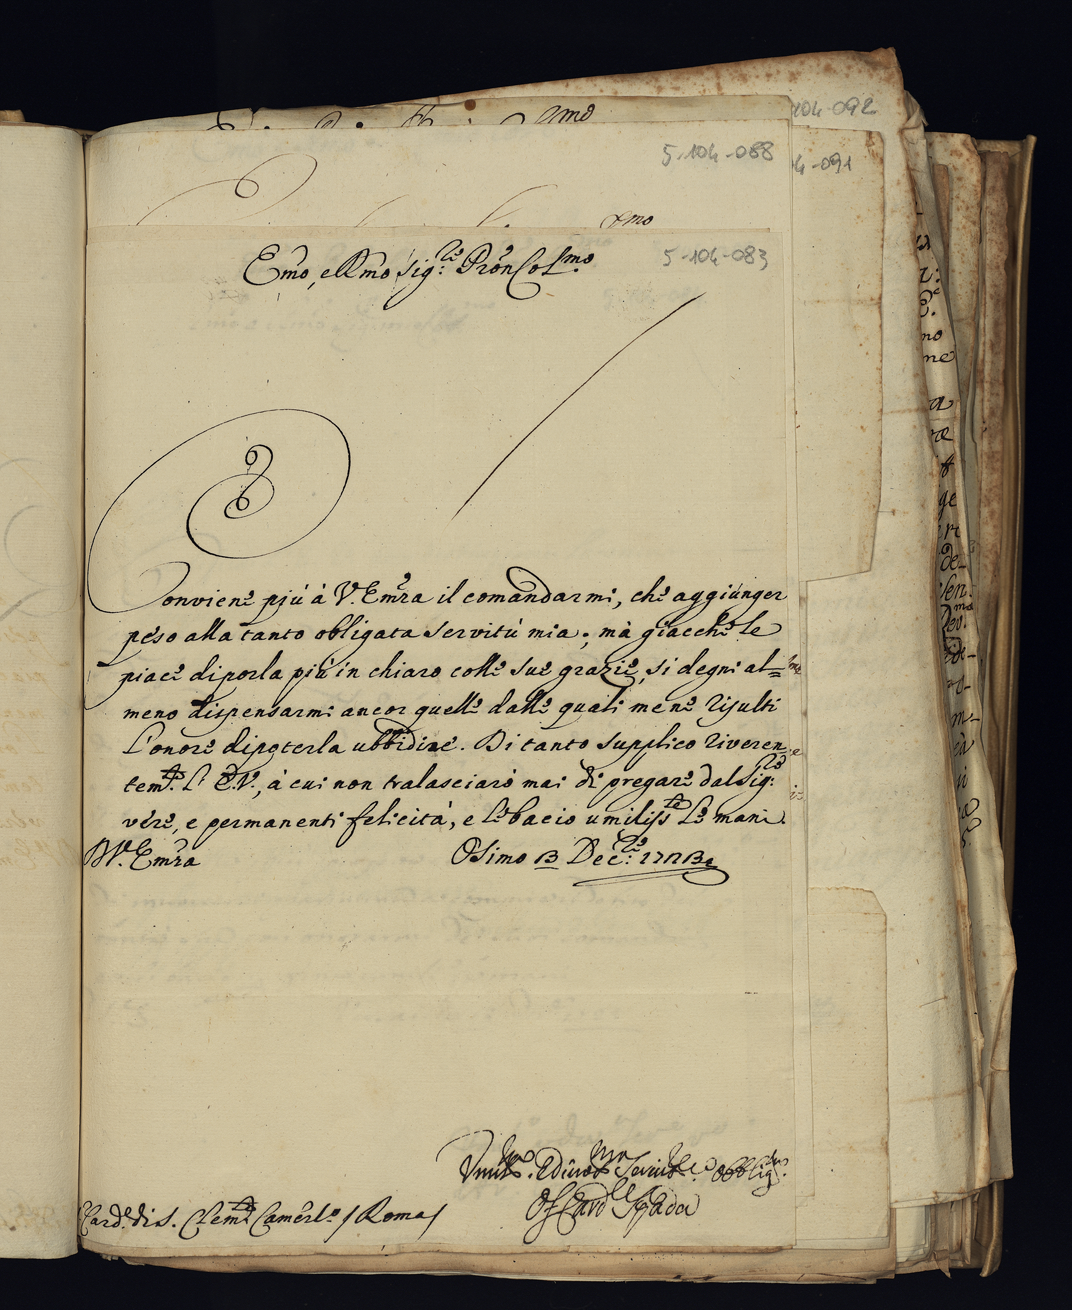 104-092
5-104-088
4-091
xmo
5-104-083
Emo, e Rmo Sig:re Pron Colmo
Conviene più à V. Emza il comandarmi, che aggiúnger
peso alla tanto obligata servitù mia; mà giacche le
piace di porla più in chiaro colle sue grazie, si degni al=
meno dispensarmi ancor quelle dalle quali me ne risulti
l'onore di poterla ubbidire. Di tanto supplico riveren=
tem.te l' E.V., à cui non tralasciarò mai di pregare dal Sig:re
vére, e permanenti felicità, e le bacio umiliss.te le mani
D V. Emza Osimo 13 Dec:re 1713
Umil.mo Divot.mo Servit.re Obblig.mo
Of Card.le Spada
Card.e di S. Clem.te Camerl.o / Roma /